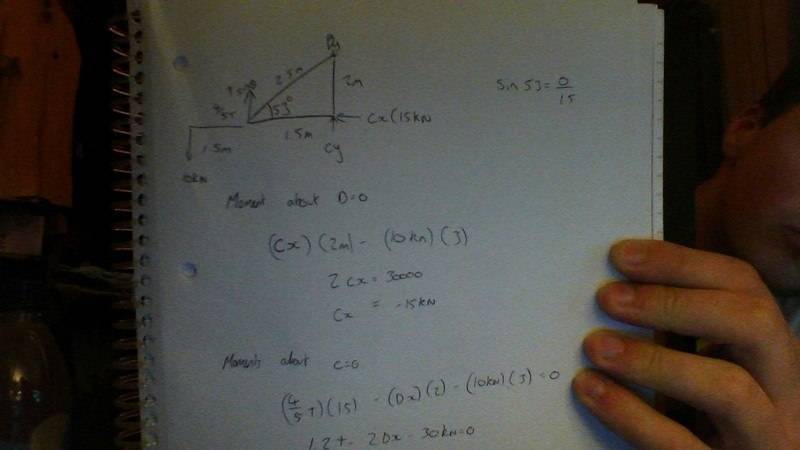 2.5m
2m
Sin 53 = 0/15
53°
Cx (15kN
1.5m
Cy
1.5m
10kN
Moment about D=0
(Cx)(2m) - (10kn)(3)
2Cx = 30000
Cx = -15kN
Moments about C=0
(4/5 T)(15) - (Dx)(2) - (10kn)(3) = 0
1.2T - 2Dx - 30kN=0